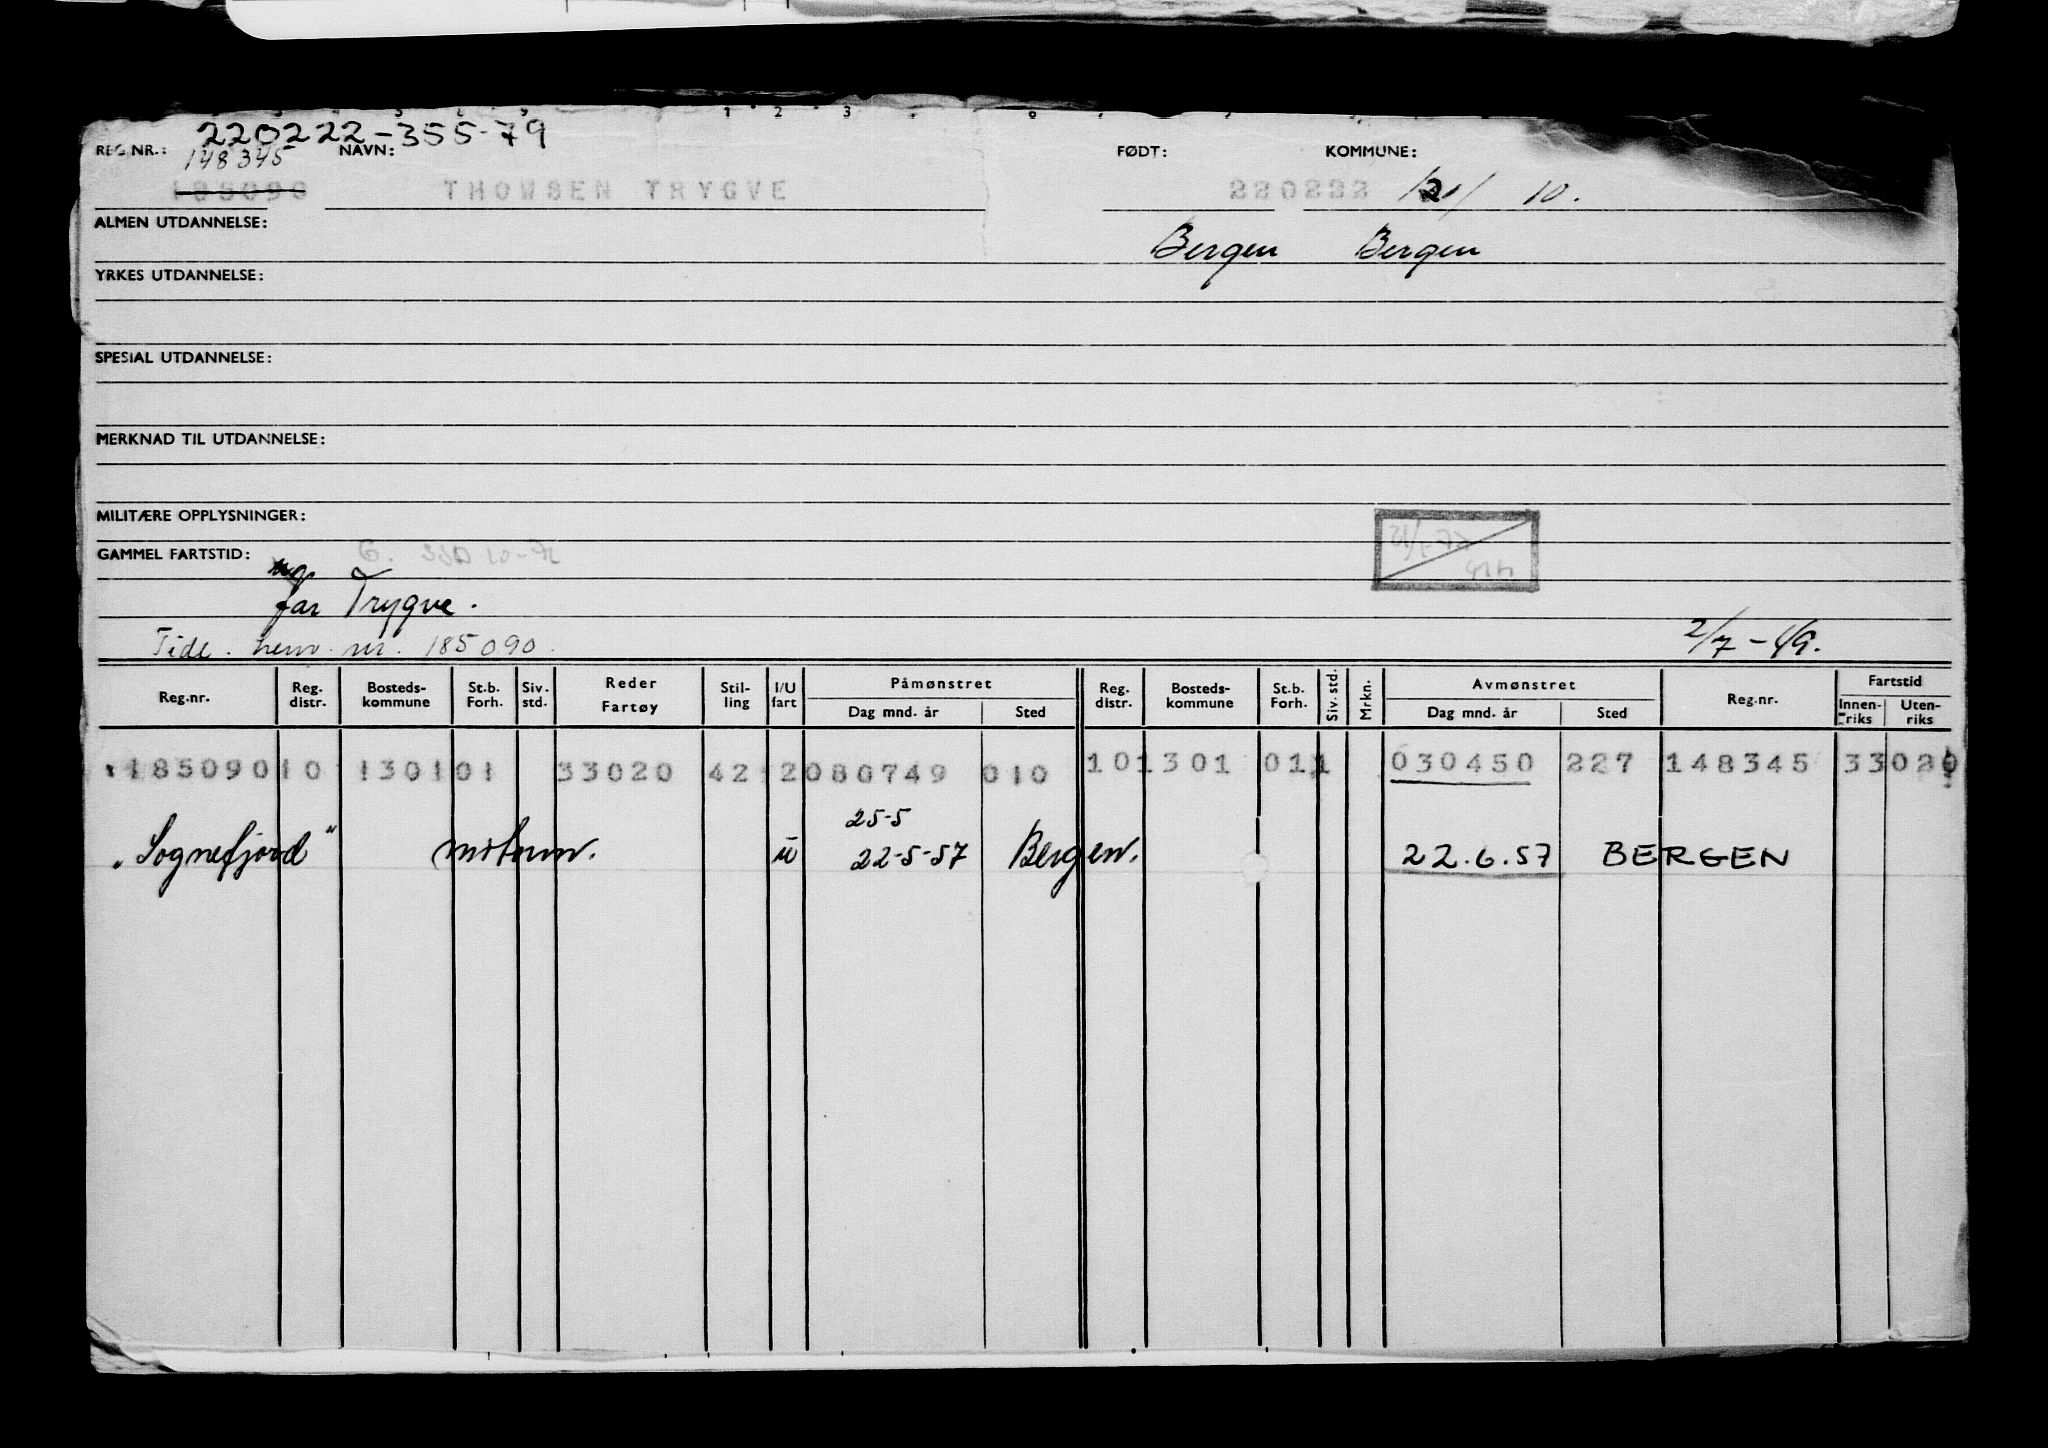 220222-355-79
REG.NR.: 148345 NAVN: FØDT: KOMMUNE:
THOWSEN TRYGVE 220222 10.
ALMEN UTDANNELSE: Bergen Bergen
YRKES UTDANNELSE:
SPESIAL UTDANNELSE:
MERKNAD TIL UTDANNELSE:
MILITÆRE OPPLYSNINGER:
GAMMEL FARTSTID:
far Trygve.
Tidl. henv. nr. 185090. 2/7-49.
Reg.nr. Reg. distr. Bosteds-kommune St.b. Forh. Siv. std. Reder Fartøy Stil-ling I/U fart Påmønstret Dag mnd. år Sted Reg. distr. Bosteds-kommune St.b. Forh. Siv. std. Mrkn. Avmønstret Dag mnd. år Sted Reg.nr. Fartstid Innen-riks Uten-riks
185090 10 1301 01 33020 42 2 080749 010 10 1301 01 1 030450 227 148345 33020
25-5
"Sognefjord" u 22-5-57 Bergen. 22.6.57 BERGEN